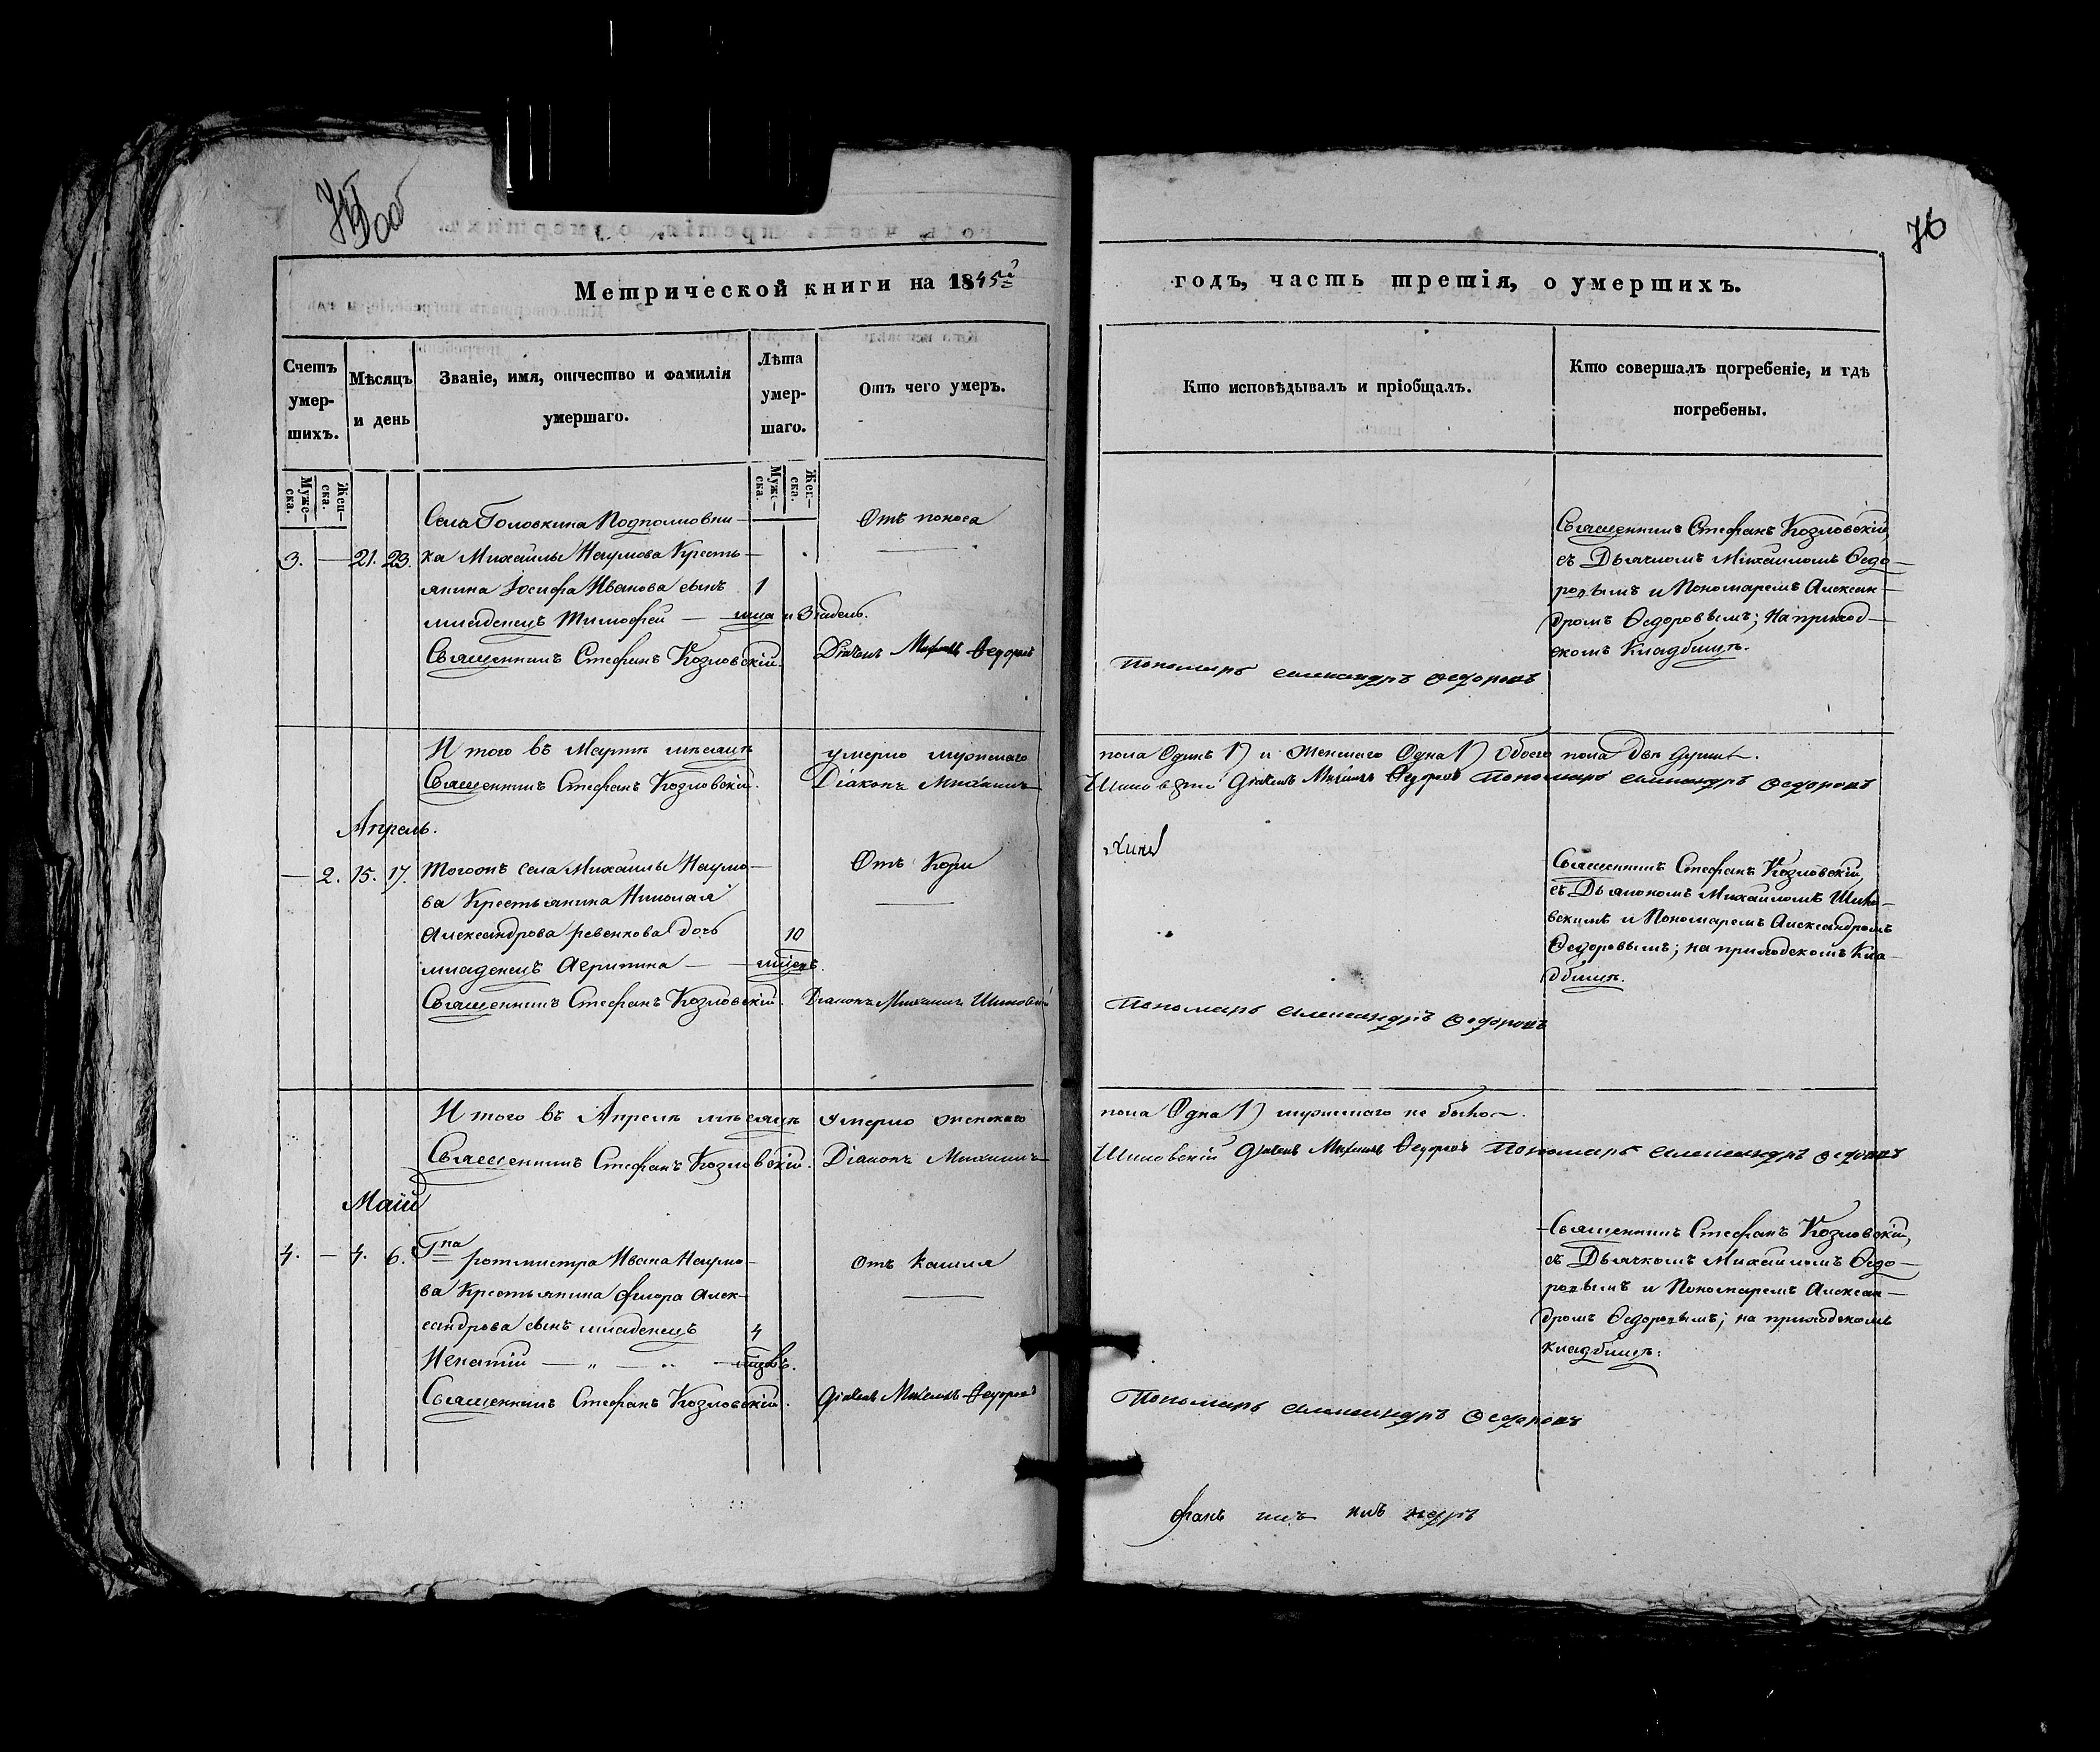 76
Метрической книги на 1845й
годъ, часть третія, о умершихъ.
Счетъ умер-шихъ.
Мѣсяцъ и день
Званіе, имя, отчество и фамилія умершаго.
Лѣта умер-шаго.
Отъ чего умеръ.
Кто исповѣдывалъ и пріобщалъ.
Кто совершалъ погребеніе, и гдѣ погребены.
Муже-ска.
Жен-ска.
Муже-ска.
Жен-ска.
3. — 21. 23.
Села Головкина Подполковни-
ка Михайлы Наумова Кресть-
янина Іосифа Иванова сынъ 1
младенецъ Тимофей — мца и 3 недел.
Священникъ Стефанъ Козловскій.
Отъ поноса
Дьячекъ Михаилъ Федоровъ
Пономарь Александръ Федоровъ
Священникъ Стефанъ Козловскій
съ Дьячкомъ Михаиломъ Ѳедо-
ровымъ и Пономаремъ Алексан-
дромъ Ѳедоровымъ; на приход-
скомъ Кладбищѣ.
Итого въ Мартѣ мѣсяцѣ умерло мужскаго
пола Одинъ 1) и Женскаго Одна 1) Обоего пола двѣ души.
Священникъ Стефанъ Козловскій. Діаконъ Михаилъ
Шиловскій Дьячекъ Михаилъ Федоровъ Пономарь Александръ Федоровъ
Апрель.
— 2. 15. 17.
Тогожъ села Михайлы Наумо-
ва Крестьянина Николая
Александрова Ревенкова дочь 10
младенецъ Агрипина — мцевъ.
Священникъ Стефанъ Козловскій.
Отъ Кори
Діаконъ Михаилъ Шиловскій
Пономарь Александръ Федоровъ
Священникъ Стефанъ Козловскій,
съ Дьякономъ Михаиломъ Шило-
вскимъ и Пономаремъ Александромъ
Ѳедоровымъ; на приходскомъ Кла-
дбищѣ.
Итого въ Апрелѣ мѣсяцѣ умерло женскаго
пола Одна 1) мужескаго не было.
Священникъ Стефанъ Козловскій. Діаконъ Михаилъ
Шиловскій Дьячекъ Михаилъ Федоровъ Пономарь Александръ Федоровъ
Маій
4. — 4. 6.
Гна ротмистра Ивана Наумо-
ва Крестьянина Флора Алек-
сандрова сынъ младенецъ 4
Игнатій — „ — мцовъ.
Священникъ Стефанъ Козловскій.
Отъ Кашля
Дьячекъ Михаилъ Федоровъ
Пономарь Александръ Федоровъ
Священникъ Стефанъ Козловскій,
съ Дьячкомъ Михаиломъ Ѳедо-
ровымъ и Пономаремъ Алексан-
дромъ Ѳедоровымъ; на приходскомъ
кладбищѣ.